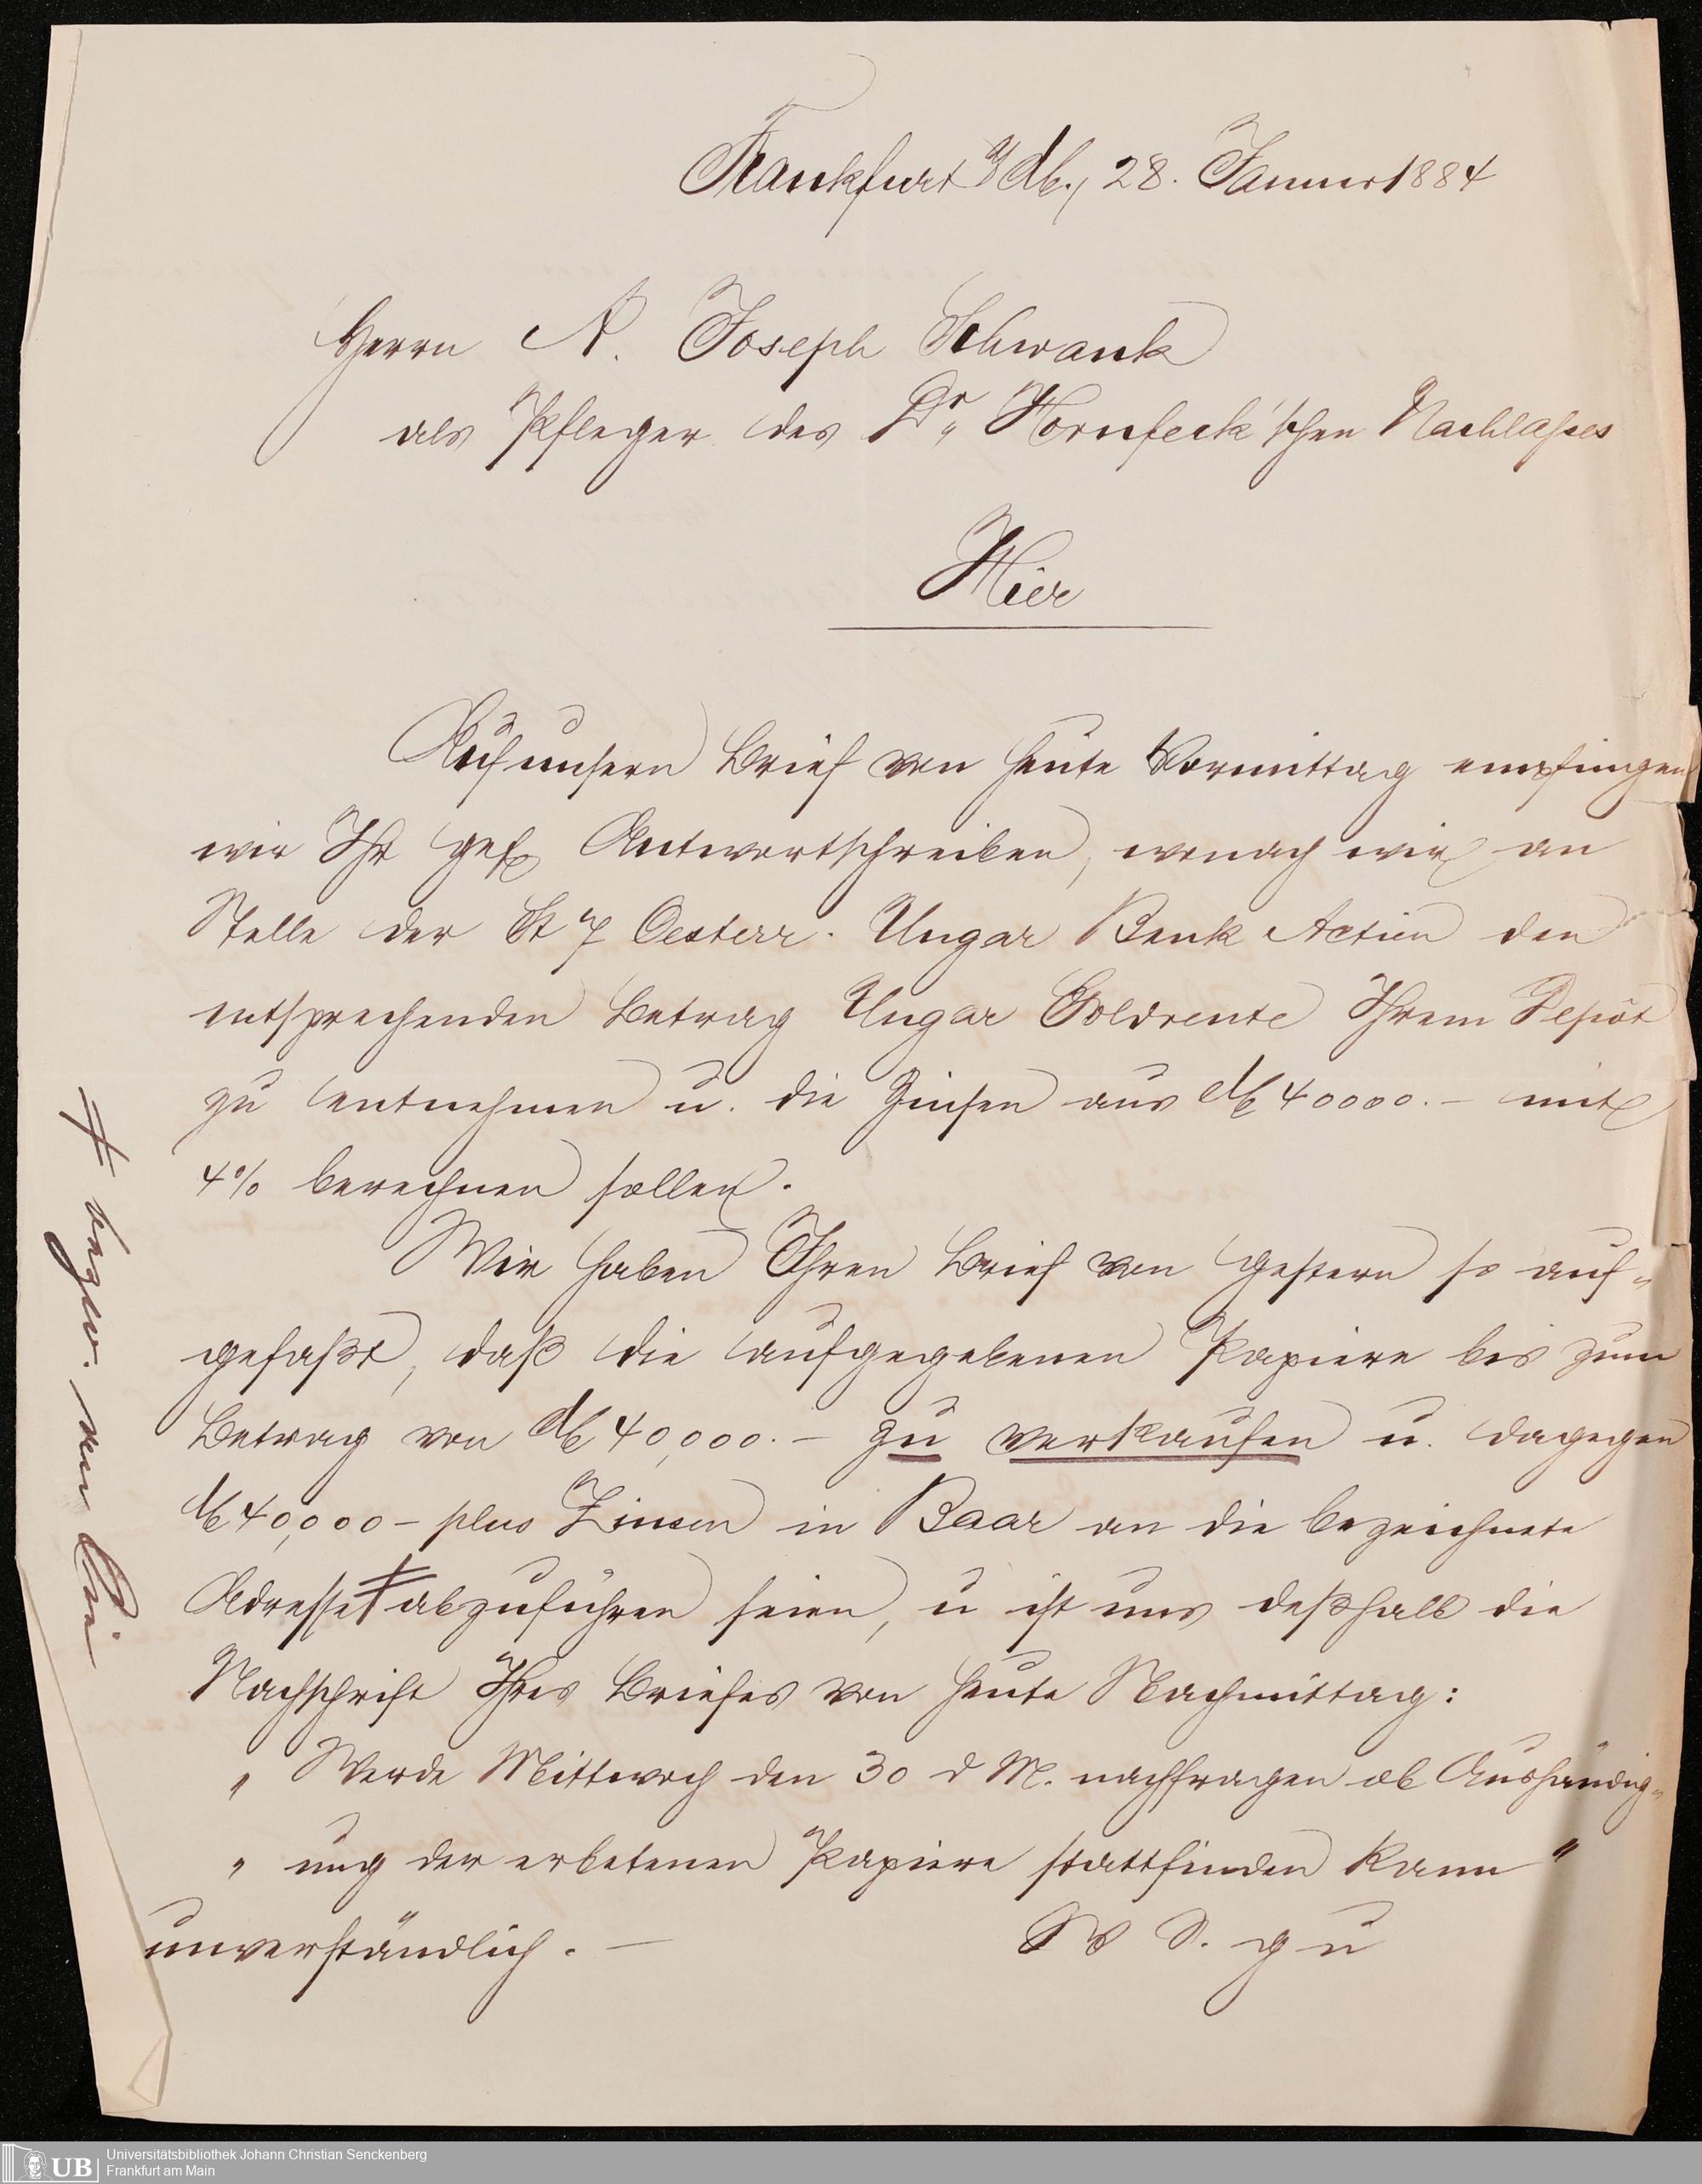 Frankfurt a/M., 28. Januar 1884
Herrn A. Joseph Schwank
als Pfleger des Dr Hornfeck'schen Nachlasses
Hier
Auf unsern Brief von heute Vormittag empfingen
wir Ihr gef. Antwortschreiben, wonach wir an
Stelle der St 7 Oesterr. Ungar Bank Actien den
entsprechenden Betrag Ungar Goldrente Ihrem Depôt
zu entnehmen u. die Zinsen aus M 40000.– mit
4% berechnen sollen.
Wir haben Ihren Brief von gestern so auf-
gefaßt, daß die aufgegebenen Papiere bis zum
Betrag von M 40,000.– zu verkaufen u. dagegen
M 40,000 – plus Zinsen in Baar an die bezeichnete
Adresse ‡ abzuführen seien, u ist uns deßhalb die
Nachschrift Ihres Briefes von heute Nachmittag:
" Werde Mittwoch den 30 d M. nachfragen ob Aushändig-
" ung der erbetenen Papiere stattfinden kann "
unverständlich. —
‡ bezw. an Sie
UB
Universitätsbibliothek Johann Christian Senckenberg
Frankfurt am Main